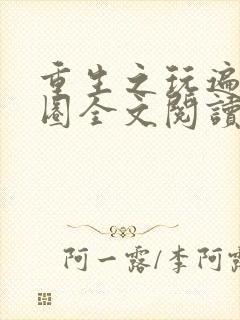 重生之玩遍
圈全文閱讀
阿一露/李阿露